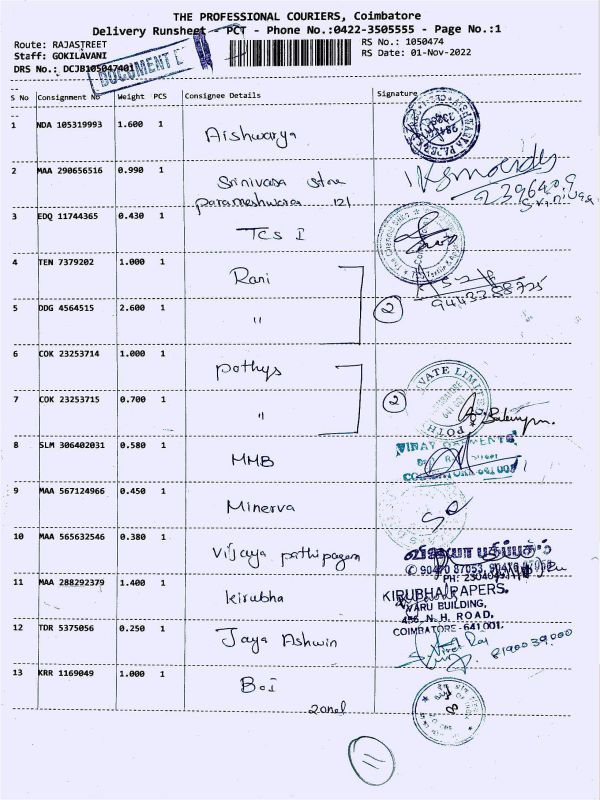 THE PROFESSIONAL COURIERS, Coimbatore
Delivery Runsheet - PCT - Phone No.:0422-3505555 - Page No.:1
Route: RAJASTREET
RS No.: 1050474
Staff: GOKILAVANI
RS Date: 01-Nov-2022
DRS No.: DCJB105047401
DOCUMENT
S No Consignment No Weight PCS Consignee Details Signature
1 NDA 105319993 1.600 1 Aishwarya
2 MAA 290656516 0.990 1 Srinivasa Store
parameshwara 121
3 EDQ 11744365 0.430 1 TCS I
4 TEN 7379202 1.000 1 Rani
9443288725
5 DDG 4564515 2.600 1 " 2
6 COK 23253714 1.000 1 Pothys
7 COK 23253715 0.700 1 " 2
8 SLM 306402031 0.580 1 MMB
VINAY GARMENTS
COIMBATORE 641 001
9 MAA 567124966 0.450 1 Minerva
10 MAA 565632546 0.380 1 Vijaya pathipagam
விஜயா பதிப்பகம்
11 MAA 288292379 1.400 1 Kirubha
KIRUBHA PAPERS.
VARU BUILDING,
456, N. H. ROAD,
COIMBATORE - 641 001.
12 TDR 5375056 0.250 1 Jaya Ashwin
8190039000
13 KRR 1169049 1.000 1 BoI
zonel